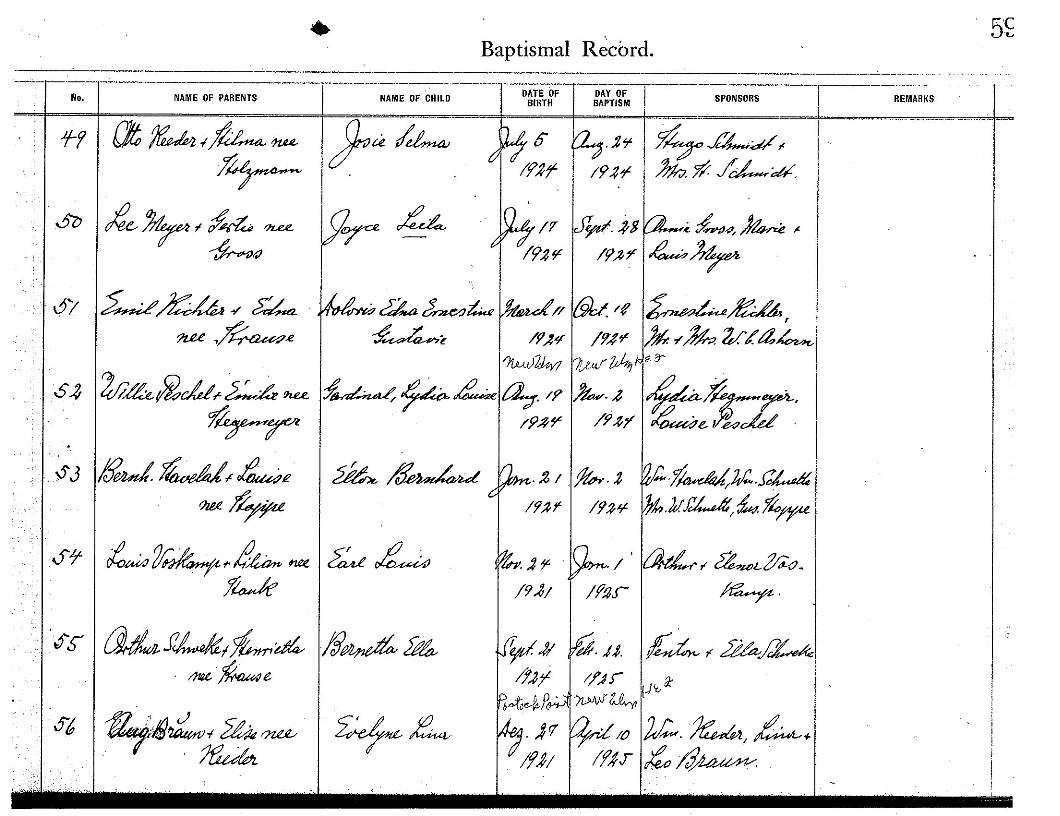 59
Baptismal Record.
No. NAME OF PARENTS NAME OF CHILD DATE OF BIRTH DAY OF BAPTISM SPONSORS REMARKS
49 Otto Reeder + Hilma nee Josie Selma July 5 Aug. 24 Hugo Schmidt +
Holzmann 1924 1924 Mrs. H. Schmidt.
50 Leo Meyer + nee Joyce Leila July 17 Sept. 28 Annie Gross, Marie +
Gross 1924 1924 Louis Meyer
51 Emil Richter + Edna Doloris Edna Ernestine March 11 Oct. 12 Ernestine Richter,
nee Krause Gustavie 1924 1924 Mr. + Mrs. W. C. Ashorn
New Ulm New Ulm
52 Willie Peschel + Emilie nee Gardinal, Lydia Louise Aug. 19 Nov. 2 Lydia Hegemeyer.
Hegemeyer 1924 1924 Louise Peschel
53 Bernh. Havelah + Louise Elton Bernhard Jan. 21 Nov. 2 Wm. Havelah, Wm. Schuette
nee Hoppe 1924 1924 Mrs. W. Schuette, Gus. Hoppe
54 Louis Voskamp + Lilian nee Earl Louis Nov. 24 Jan. 1 Arthur + Elenor Vos-
Hank 1921 1925 kamp.
55 Arthur Schweke + Henrietta Bernetta Ella Sept. 21 Feb. 22. Fenton + Ella Schweke
nee Krause 1924 1925
New Ulm
56 Aug Braun + Elise nee Evelyne Lina Dez. 27 April 10 Wm. Reeder, Lina +
Reeder 1921 1925 Leo Braun.